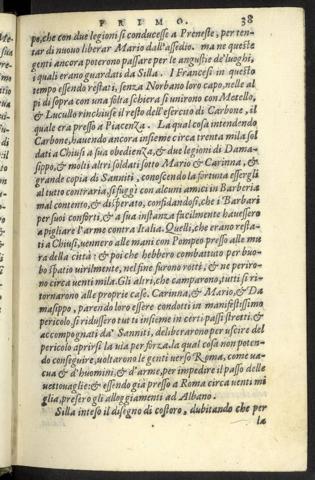 PRIMO. 38
po, che con due legioni si conducesse a Preneste, per ten-
tar di nuouo liberar Mario dall'assedio. ma ne queste
genti ancora poterono passare per le angustie de' luoghi,
i quali erano guardati da Silla. I Francesi in questo
tempo essendo restati, senza Norbano loro capo, nelle al
pi di sopra con una folta schiera si unirono con Metello,
& Lucullo rinchiuse il resto dell' esercito di Carbone, il
quale era presso a Piacenza. La qual cosa intendendo
Carbone, hauendo ancora insieme circa trenta mila sol
dati a Chiusi a sua obedienza, & due legioni di Dama-
sippo, & molti altri soldati sotto Mario & Carinna, &
grande copia di Sanniti, conoscendo la fortuna essergli
al tutto contraria, si fuggì con alcuni amici in Barberia
mal contento, & disperato, confidandosi, che i Barbari
per suoi conforti, & a sua instanza facilmente hauessero
a pigliare l'arme contro Italia. Quelli, che erano resta-
ti a Chiusi, uennero alle mani con Pompeo presso alle mu
ra della città: & poi che hebbero combattuto per buo-
bo spatio uirilmente, nel fine furono rotti, & ne periro-
no circa uenti mila. Gli altri, che camparono, tutti si ri-
tornarono alle proprie case. Carinna, & Mario, & Da
masippo, parendo loro essere condotti in manifestissimo
pericolo, si ridussero tutti insieme in certi passi stretti: &
accompognati da' Sanniti, deliberarono per uscire del
pericolo aprirsi la uia per forza. la qual cosa non poten-
do conseguire, uoltarono le genti uerso Roma, come ua-
cua & d'huomini, & d'arme, per impedire il passo delle
uettouaglie: & essendo già presso a Roma circa uenti mi
glia, presero gli alloggiamenti ad Albano.
Silla inteso il disegno di costoro, dubitando che per
la